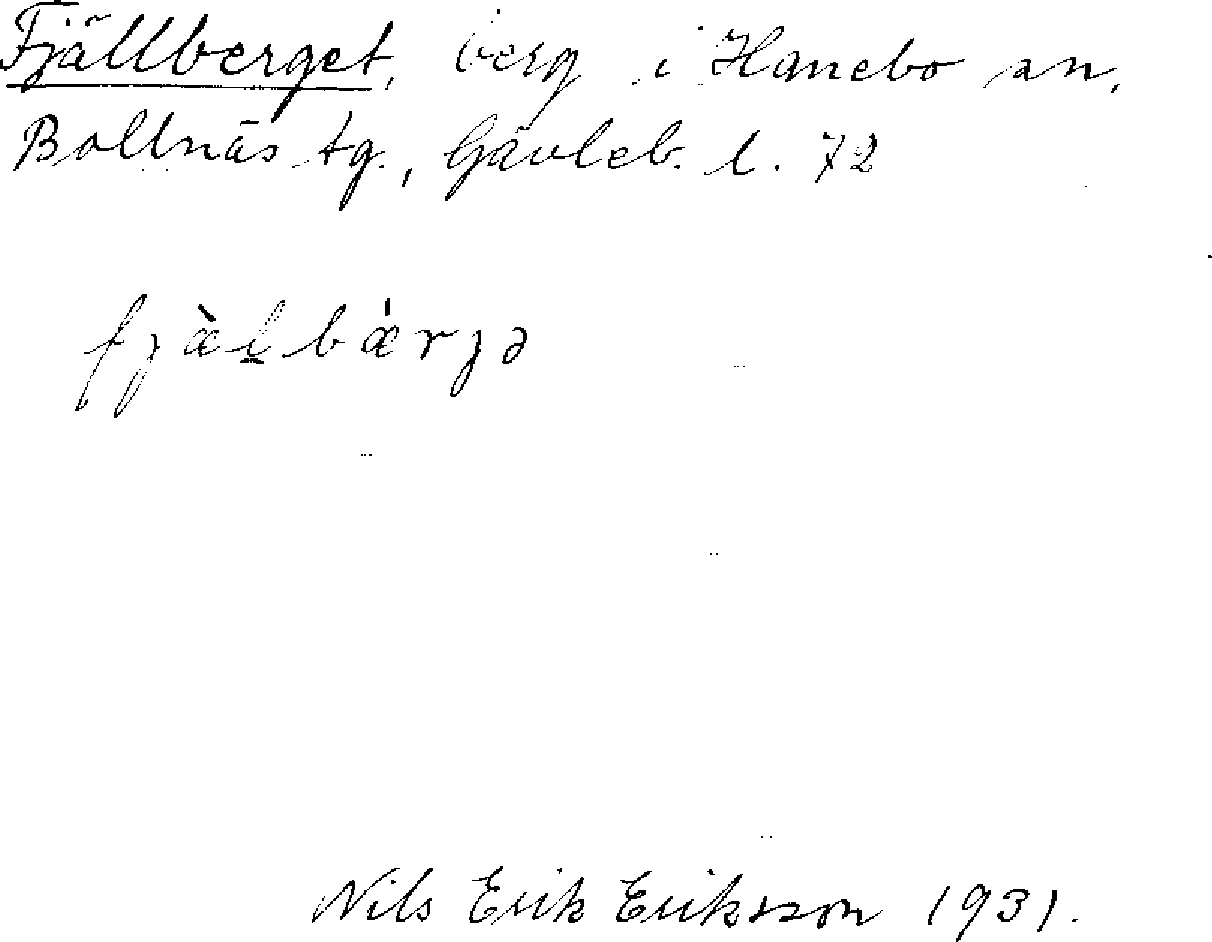 Fjällberget, berg i Hanebo sn,
Bollnäs tg., Gävleb. l. 72
fjæ̀l̲bǽrjə
Nils Erik Eriksson 1931.